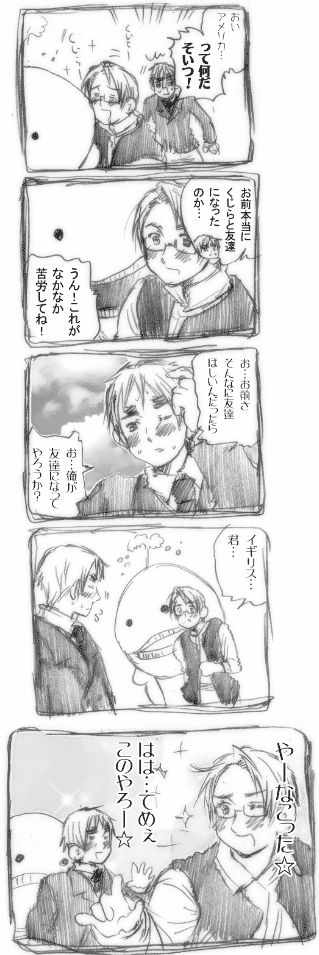 おい
アメリカ…
って何だ
そいつ！
くじらー
くじらー
お前本当に
くじらと友達
になった
のか…
うん！これが
なかなか
苦労してね！
お…お前さ
そんなに友達
ほしいんだったら
お…俺が
友達になって
やろうか？
イギリス…
君…
やーなこった☆
はは…てめぇ
このやろー☆